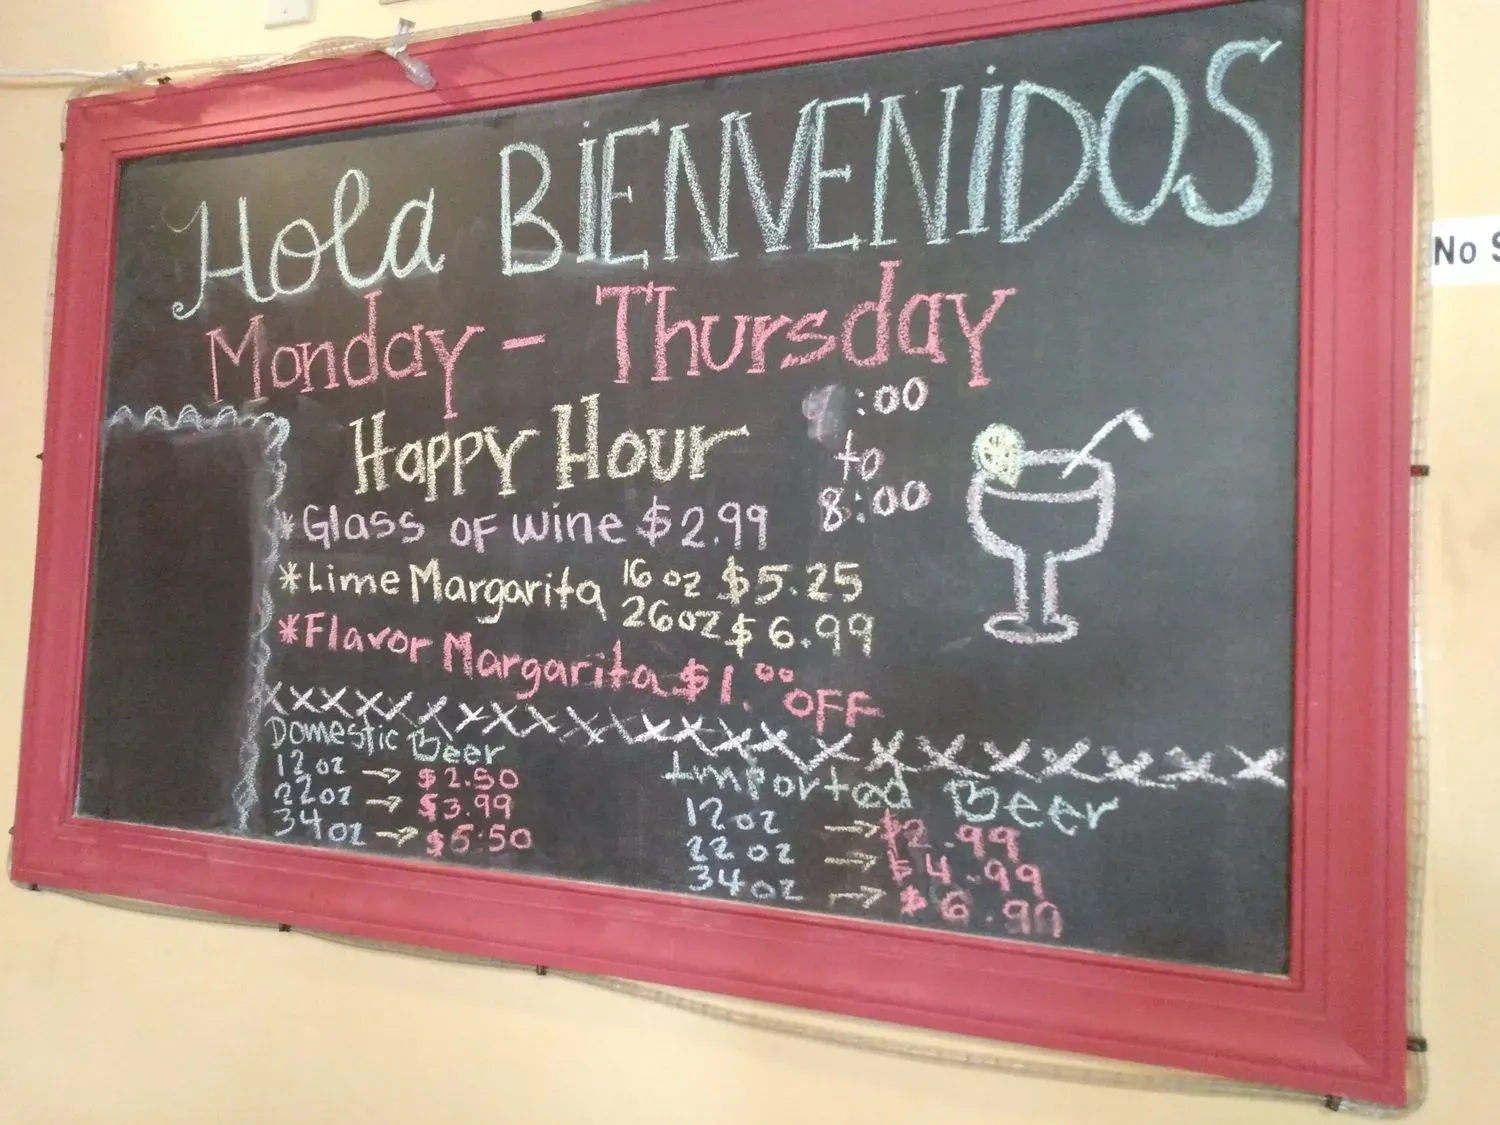 Hola BIENVENIDOS
Monday - Thursday
Happy Hour
:00
to
8:00
*Glass of wine $2.99
*Lime Margarita 16 oz $5.25
26oz $6.99
*Flavor Margarita $1.00 OFF
XXXXXXXXXXXXXXXXXXXXXXXXXX
Domestic Beer
12 oz → $2.50
22oz → $3.99
34oz → $5.50
Imported Beer
12oz → $2.99
22oz → $4.99
34oz → $6.99
No